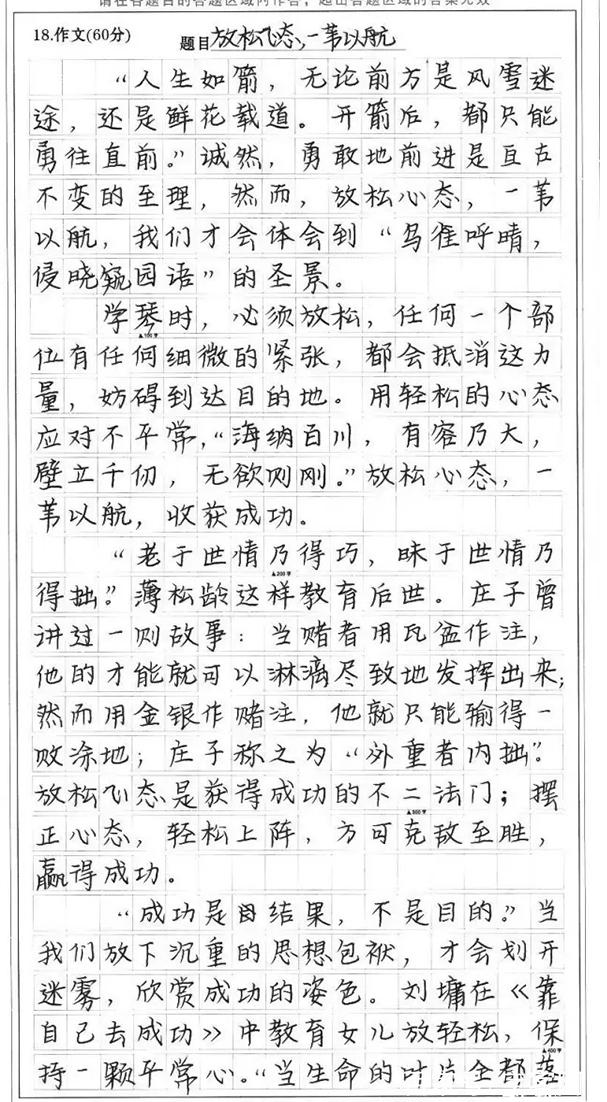 请在各题目的答题区域内作答，超出答题区域的答案无效
18.作文(60分) 题目 放松心态，一苇以航
“人生如箭，无论前方是风雪迷
途，还是鲜花载道。开箭后，都只能
勇往直前。”诚然，勇敢地前进是亘古
不变的至理，然而，放松心态，一苇
以航，我们才会体会到“鸟雀呼晴，
侵晓窥园语”的圣景。
学琴时，必须放松，任何一个部
▲100字
位有任何细微的紧张，都会抵消这力
量，妨碍到达目的地。用轻松的心态
应对不平常，“海纳百川，有容乃大，
壁立千仞，无欲则刚。”放松心态，一
苇以航，收获成功。
“老于世情乃得巧，昧于世情乃
▲200字
得拙。”薄松龄这样教育后世。庄子曾
讲过一则故事：当赌者用瓦盆作注，
他的才能就可以淋漓尽致地发挥出来；
然而用金银作赌注，他就只能输得一
败涂地；庄子称之为“外重者内拙”。
放松心态是获得成功的不二法门；摆
▲300字
正心态，轻松上阵，方可克敌至胜，
赢得成功。
“成功是结果，不是目的。”当
我们放下沉重的思想包袱，才会划开
迷雾，欣赏成功的姿色。刘墉在《靠
自己去成功》中教育女儿放轻松，保
▲400字
持一颗平常心。“当生命的叶片全都落